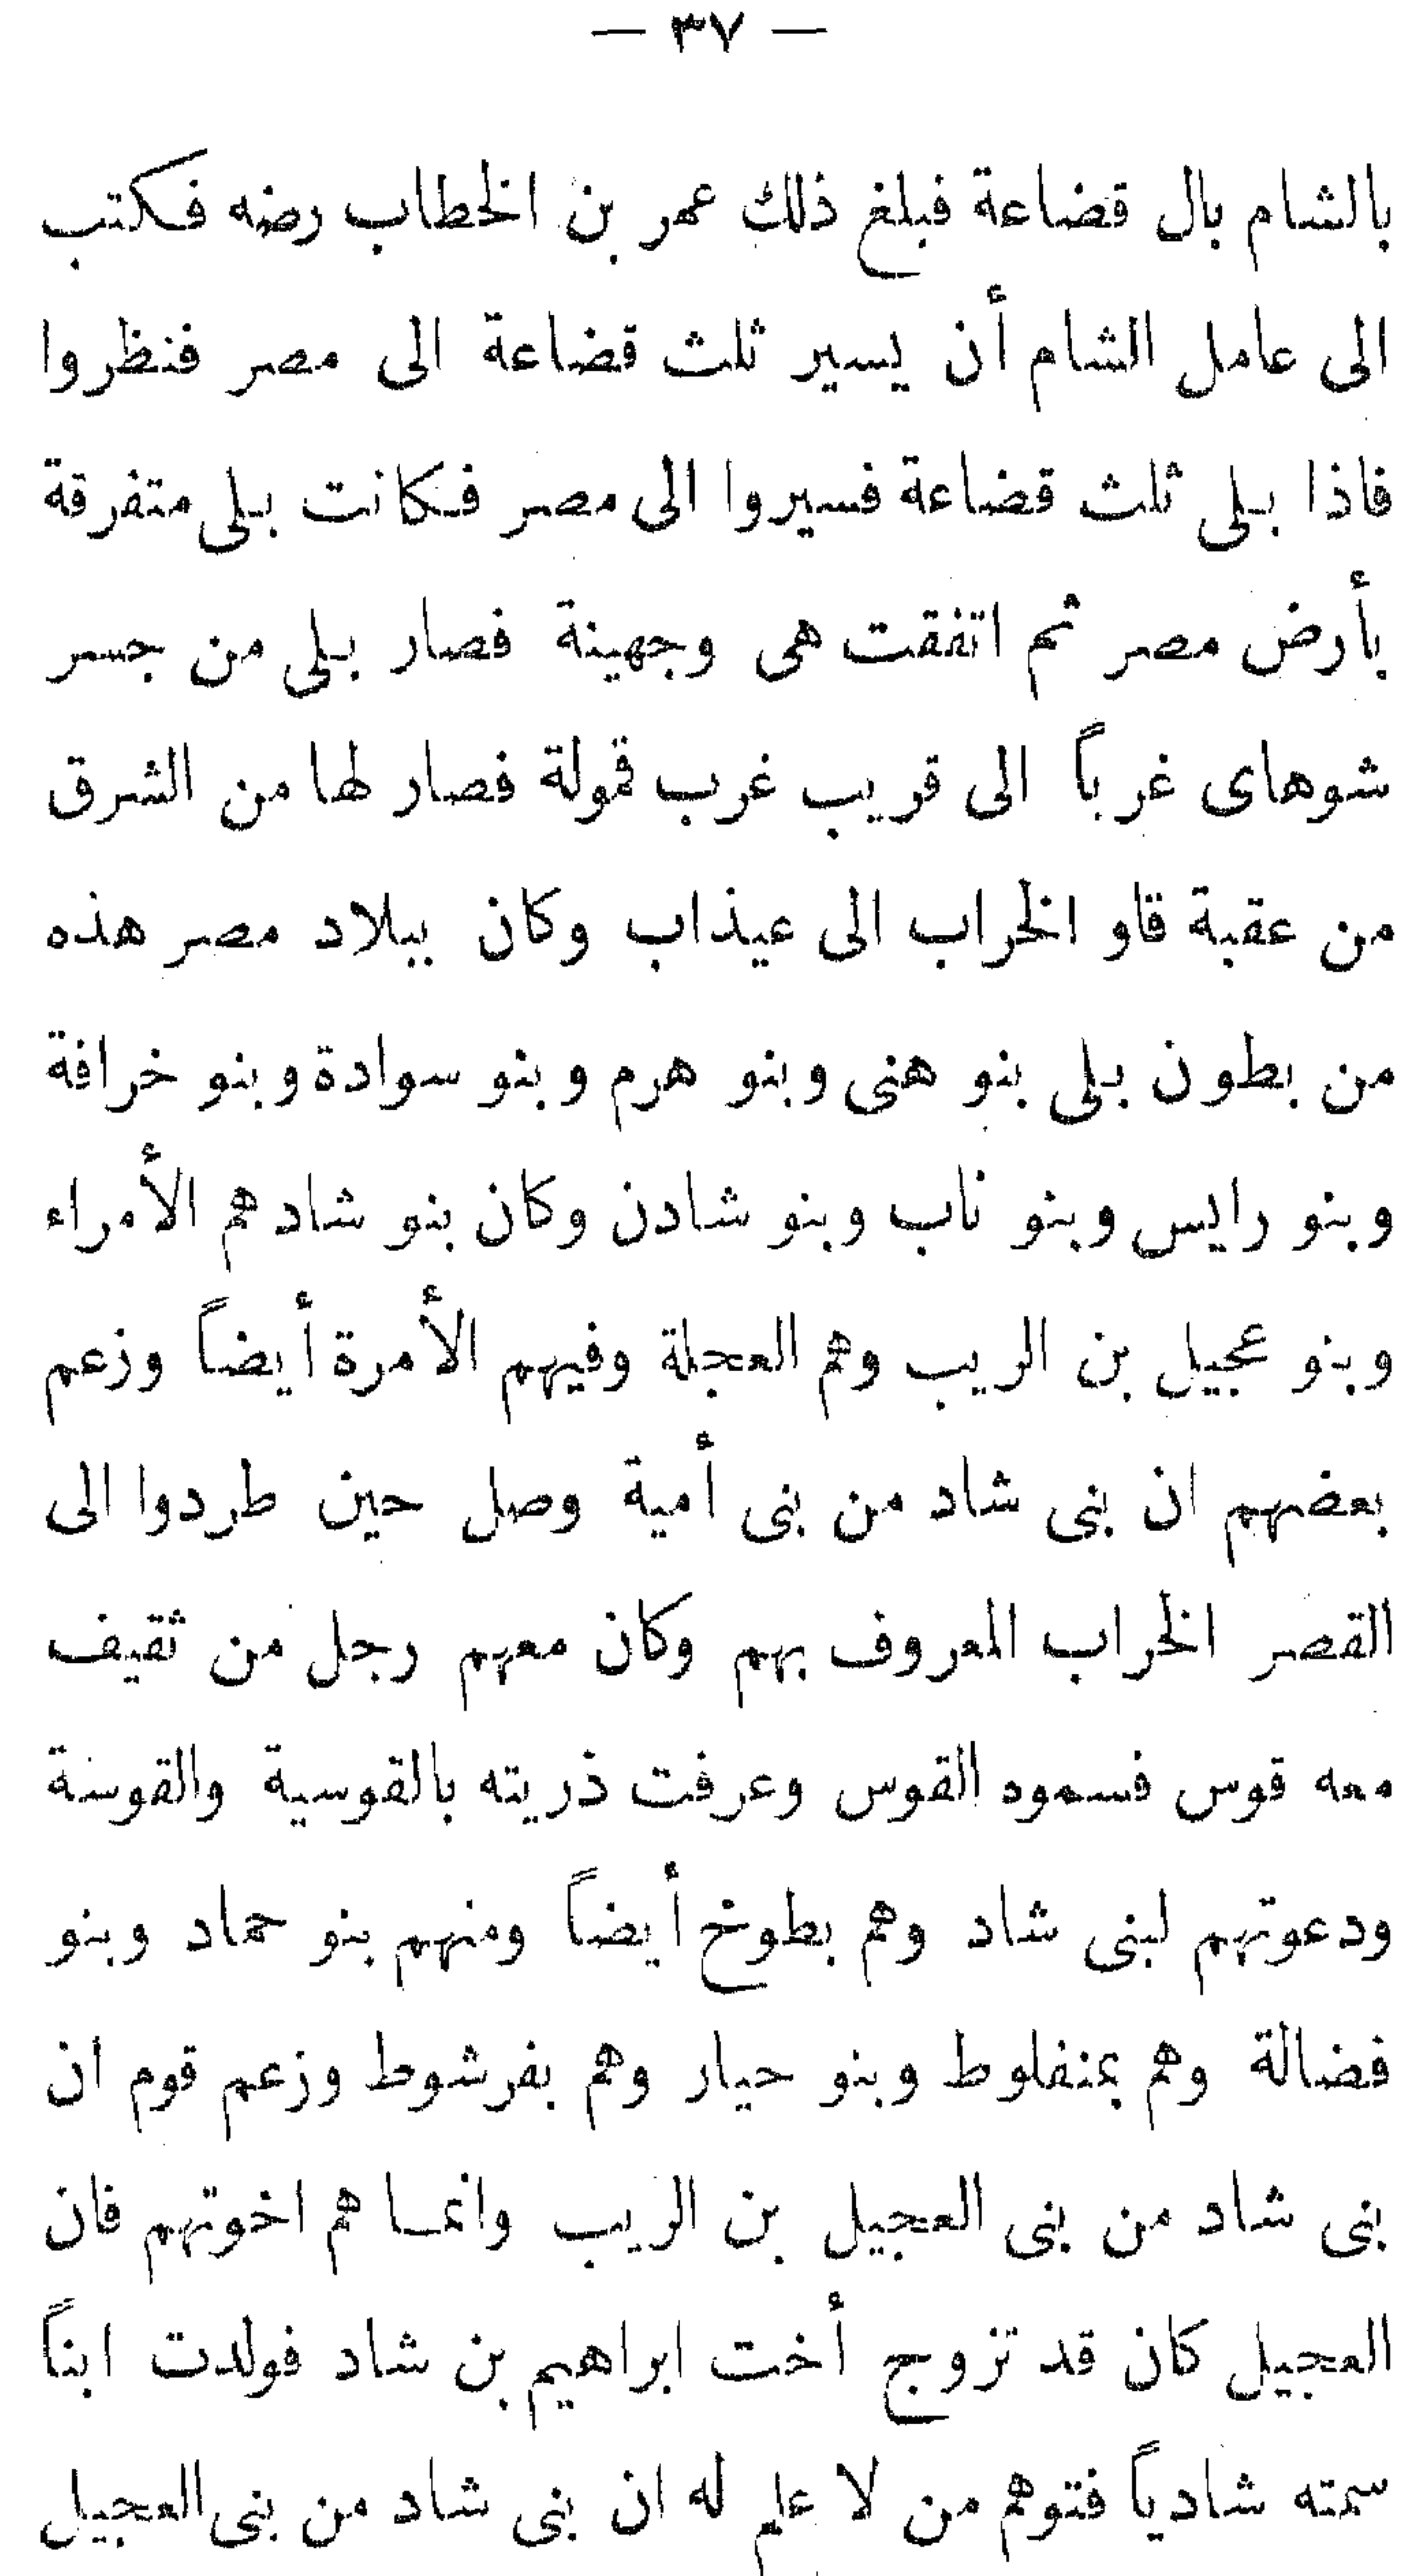 — ٣٧ —
بالشام بال قضاعة فبلغ ذلك عمر بن الخطاب رضه فكتب
الى عامل الشام أن يسير ثلث قضاعة الى مصر فنظروا
فاذا بلى ثلث قضاعة فسيروا الى مصر فكانت بلى متفرقة
بأرض مصر ثم اتفقت هى وجهينة فصار بلى من جسر
شوهاى غرباً الى قريب غرب قمولة فصار لها من الشرق
من عقبة قاو الخراب الى عيذاب وكان ببلاد مصر هذه
من بطون بلى بنو هنى وبنو هرم وبنو سوادة وبنو خرافة
وبنو رايس وبنو ناب وبنو شادن وكان بنو شاد هم الأمراء
وبنو عجيل بن الريب وهم العجلة وفيهم الأمرة أيضاً وزعم
بعضهم ان بنى شاد من بنى أمية وصل حين طردوا الى
القصر الخراب المعروف بهم وكان معهم رجل من ثقيف
معه قوس فسموه القوس وعرفت ذريته بالقوسية والقوسة
ودعوتهم لبنى شاد وهم بطوخ أيضاً ومنهم بنو حماد وبنو
فضالة وهم بمنفلوط وبنو حيار وهم بفرشوط وزعم قوم ان
بنى شاد من بنى العجيل بن الريب وانما هم اخوتهم فان
العجيل كان قد تزوج أخت ابراهيم بن شاد فولدت ابناً
سمته شادياً فتوهم من لا علم له ان بنى شاد من بنى العجيل